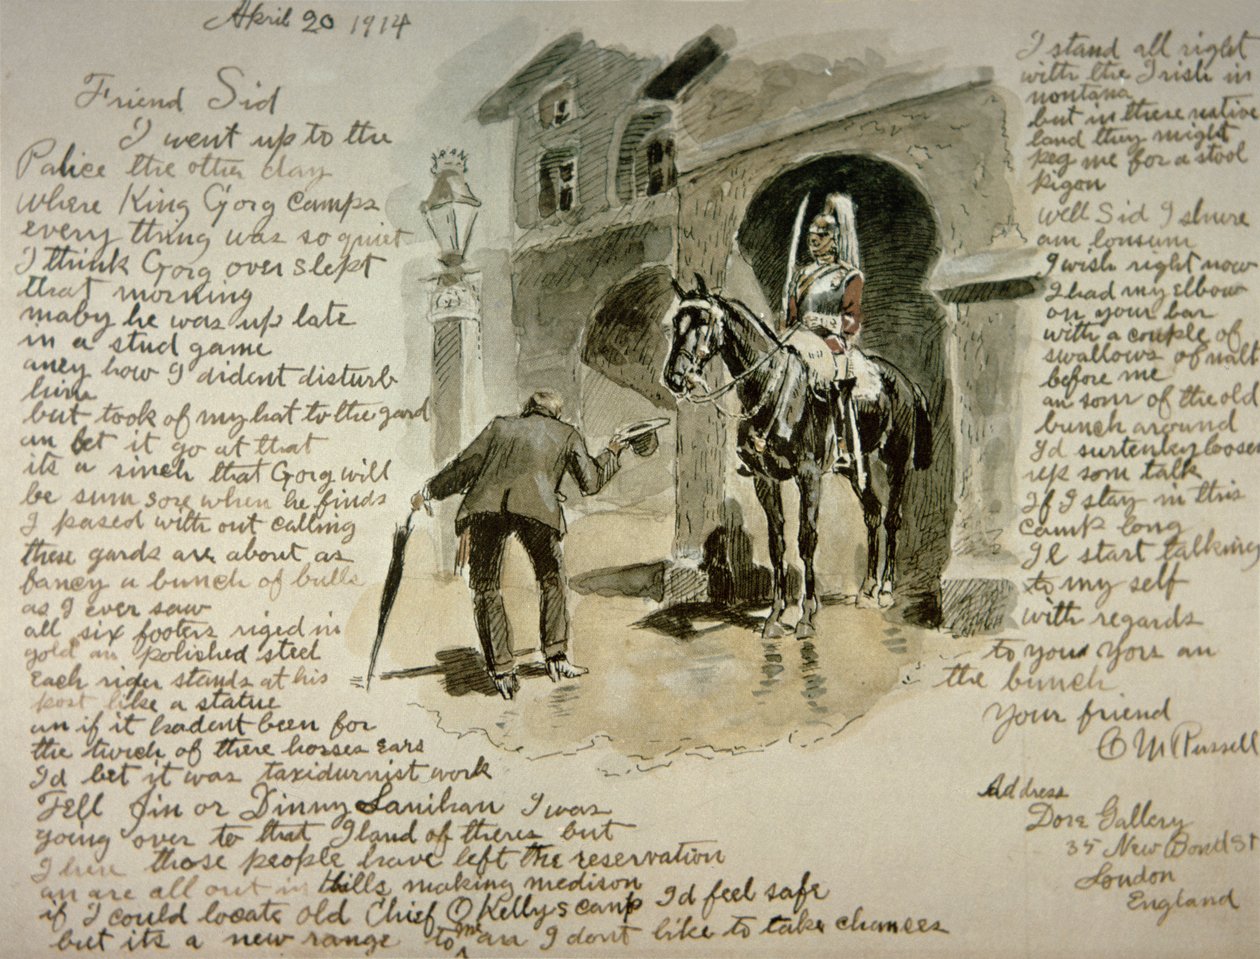 April 20 1914
Friend Sid
I went up to the
Palice the other day
where King Gorg camps
every thing was so quiet
I think Gorg over slept
that morning
maby he was up late
in a stud game
aney how I dident disturb
him
but took of my hat to the gard
an let it go at that
its a sinch that Gorg will
be sum sore when he finds
I pased with out calling
these gards are about as
fancy a bunch of bulls
as I ever saw
all six footers riged in
gold an polished steel
Each rider stands at his
post like a statue
an if it hadent been for
the twich of there horses ears
I'd bet it was taxidurmist work
Tell Jim or Dinny Lanihan I was
going over to that Iland of theres but
I here those people have left the reservation
an are all out in hills making medison
if I could locate old Chief O Kellys camp I'd feel safe
but its a new range to me an I dont like to take chances
I stand all right
with the Irish in
montana
but in there native
land they might
peg me for a stool
pigon
Well Sid I shure
am lonsum
I wish right now
I had my elbow
on your bar
with a couple of
swallows of malt
before me
an som of the old
bunch around
I'd surtenley loosen
up som talk
If I stay in this
camp long
Il start talking
to my self
with regards
to you yors an
the bunch
Your friend
C M Russell
Address
Dore Gallery
35 New Bond St
London
England